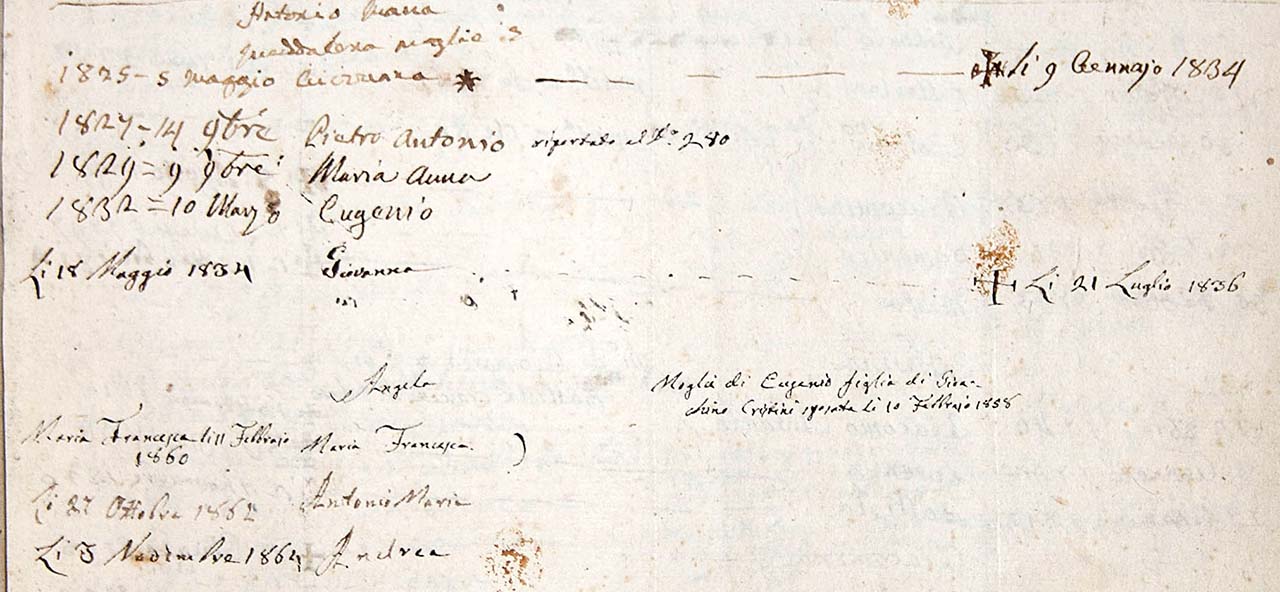 Antonio Maria
Maddalena moglie
1825 - 5 Maggio * — — — — Li 9 Gennajo 1834
1827 - 14 9bre Pietro Antonio riportato al No. 280
1829 = 9 9bre Maria Anna
1832 = 10 Marzo Eugenio
Li 18 Maggio 1834 Giovanna Li 21 Luglio 1836
Angela Moglie di Eugenio figlia di Gioa-
chino Cristini sposata li 10 Febbrajo 1858
Maria Francesca li 11 Febbrajo Maria Francesca )
1860
Li 27 Ottobre 1862 Antonio Maria
Li 3 Novimbre 1864 Andrea